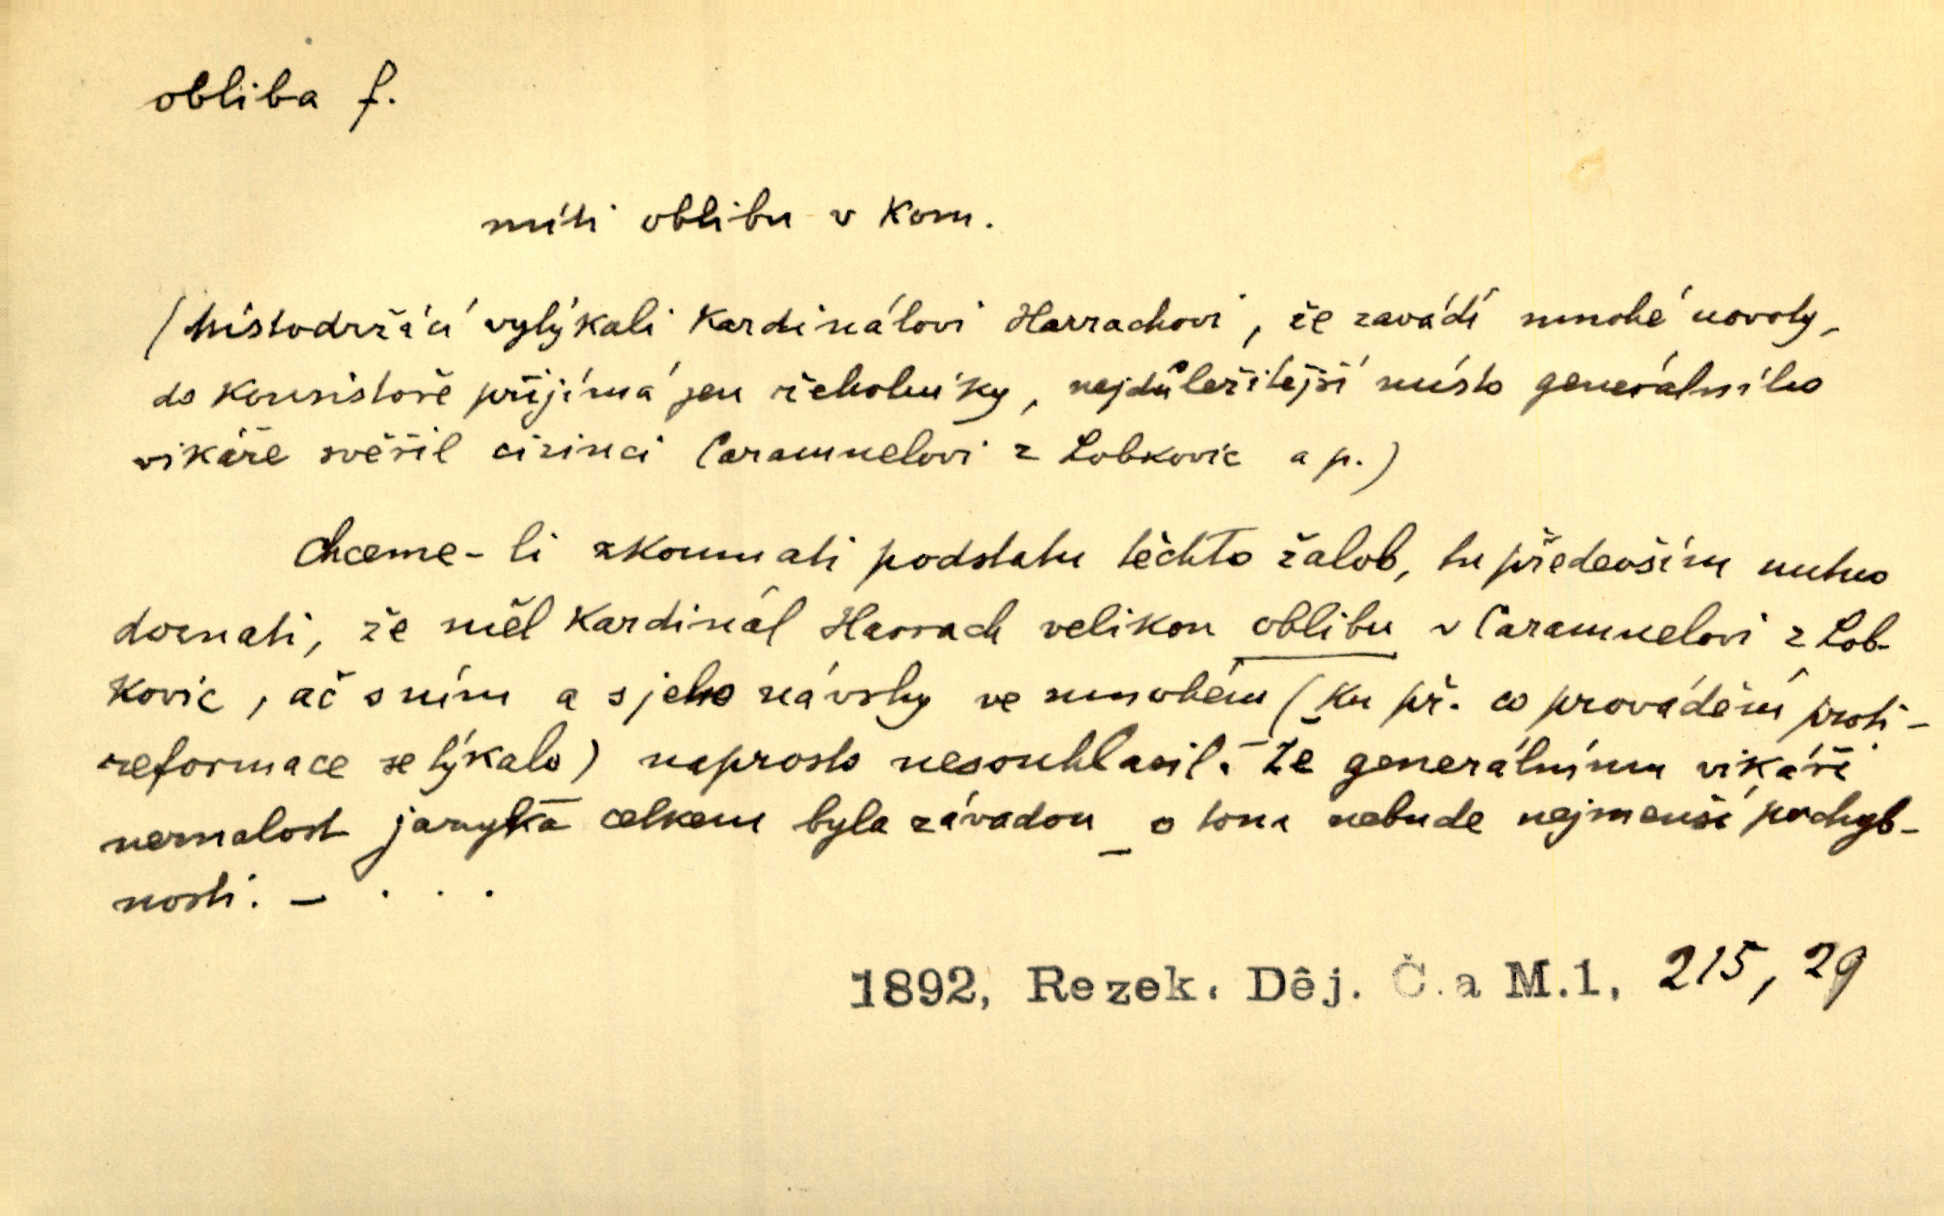 obliba f.
míti oblibu v kom.
(Místodržící vytýkali kardinálovi Harrachovi, že zavádí mnohé novoty,
do konsistoře přijímá jen řeholníky, nejdůležitější místo generálního
vikáře svěřil cizinci Caramuelovi z Lobkovic a p.)
Chceme-li zkoumati podstatu těchto žalob, tu především nutno
doznati, že měl kardinál Harrach velikou oblibu v Caramuelovi z Lob-
kovic, ač s ním a s jeho návrhy ve mnohém (ku př. co provádění proti-
reformace se týkalo) naprosto nesouhlasil. Že generálnímu vikáři
neznalost jazyka celkem byla závadou_o tom nebude nejmenší pochyb-
nosti. - . . .
1892, Rezek. Děj. Č. a M.1, 215, 29